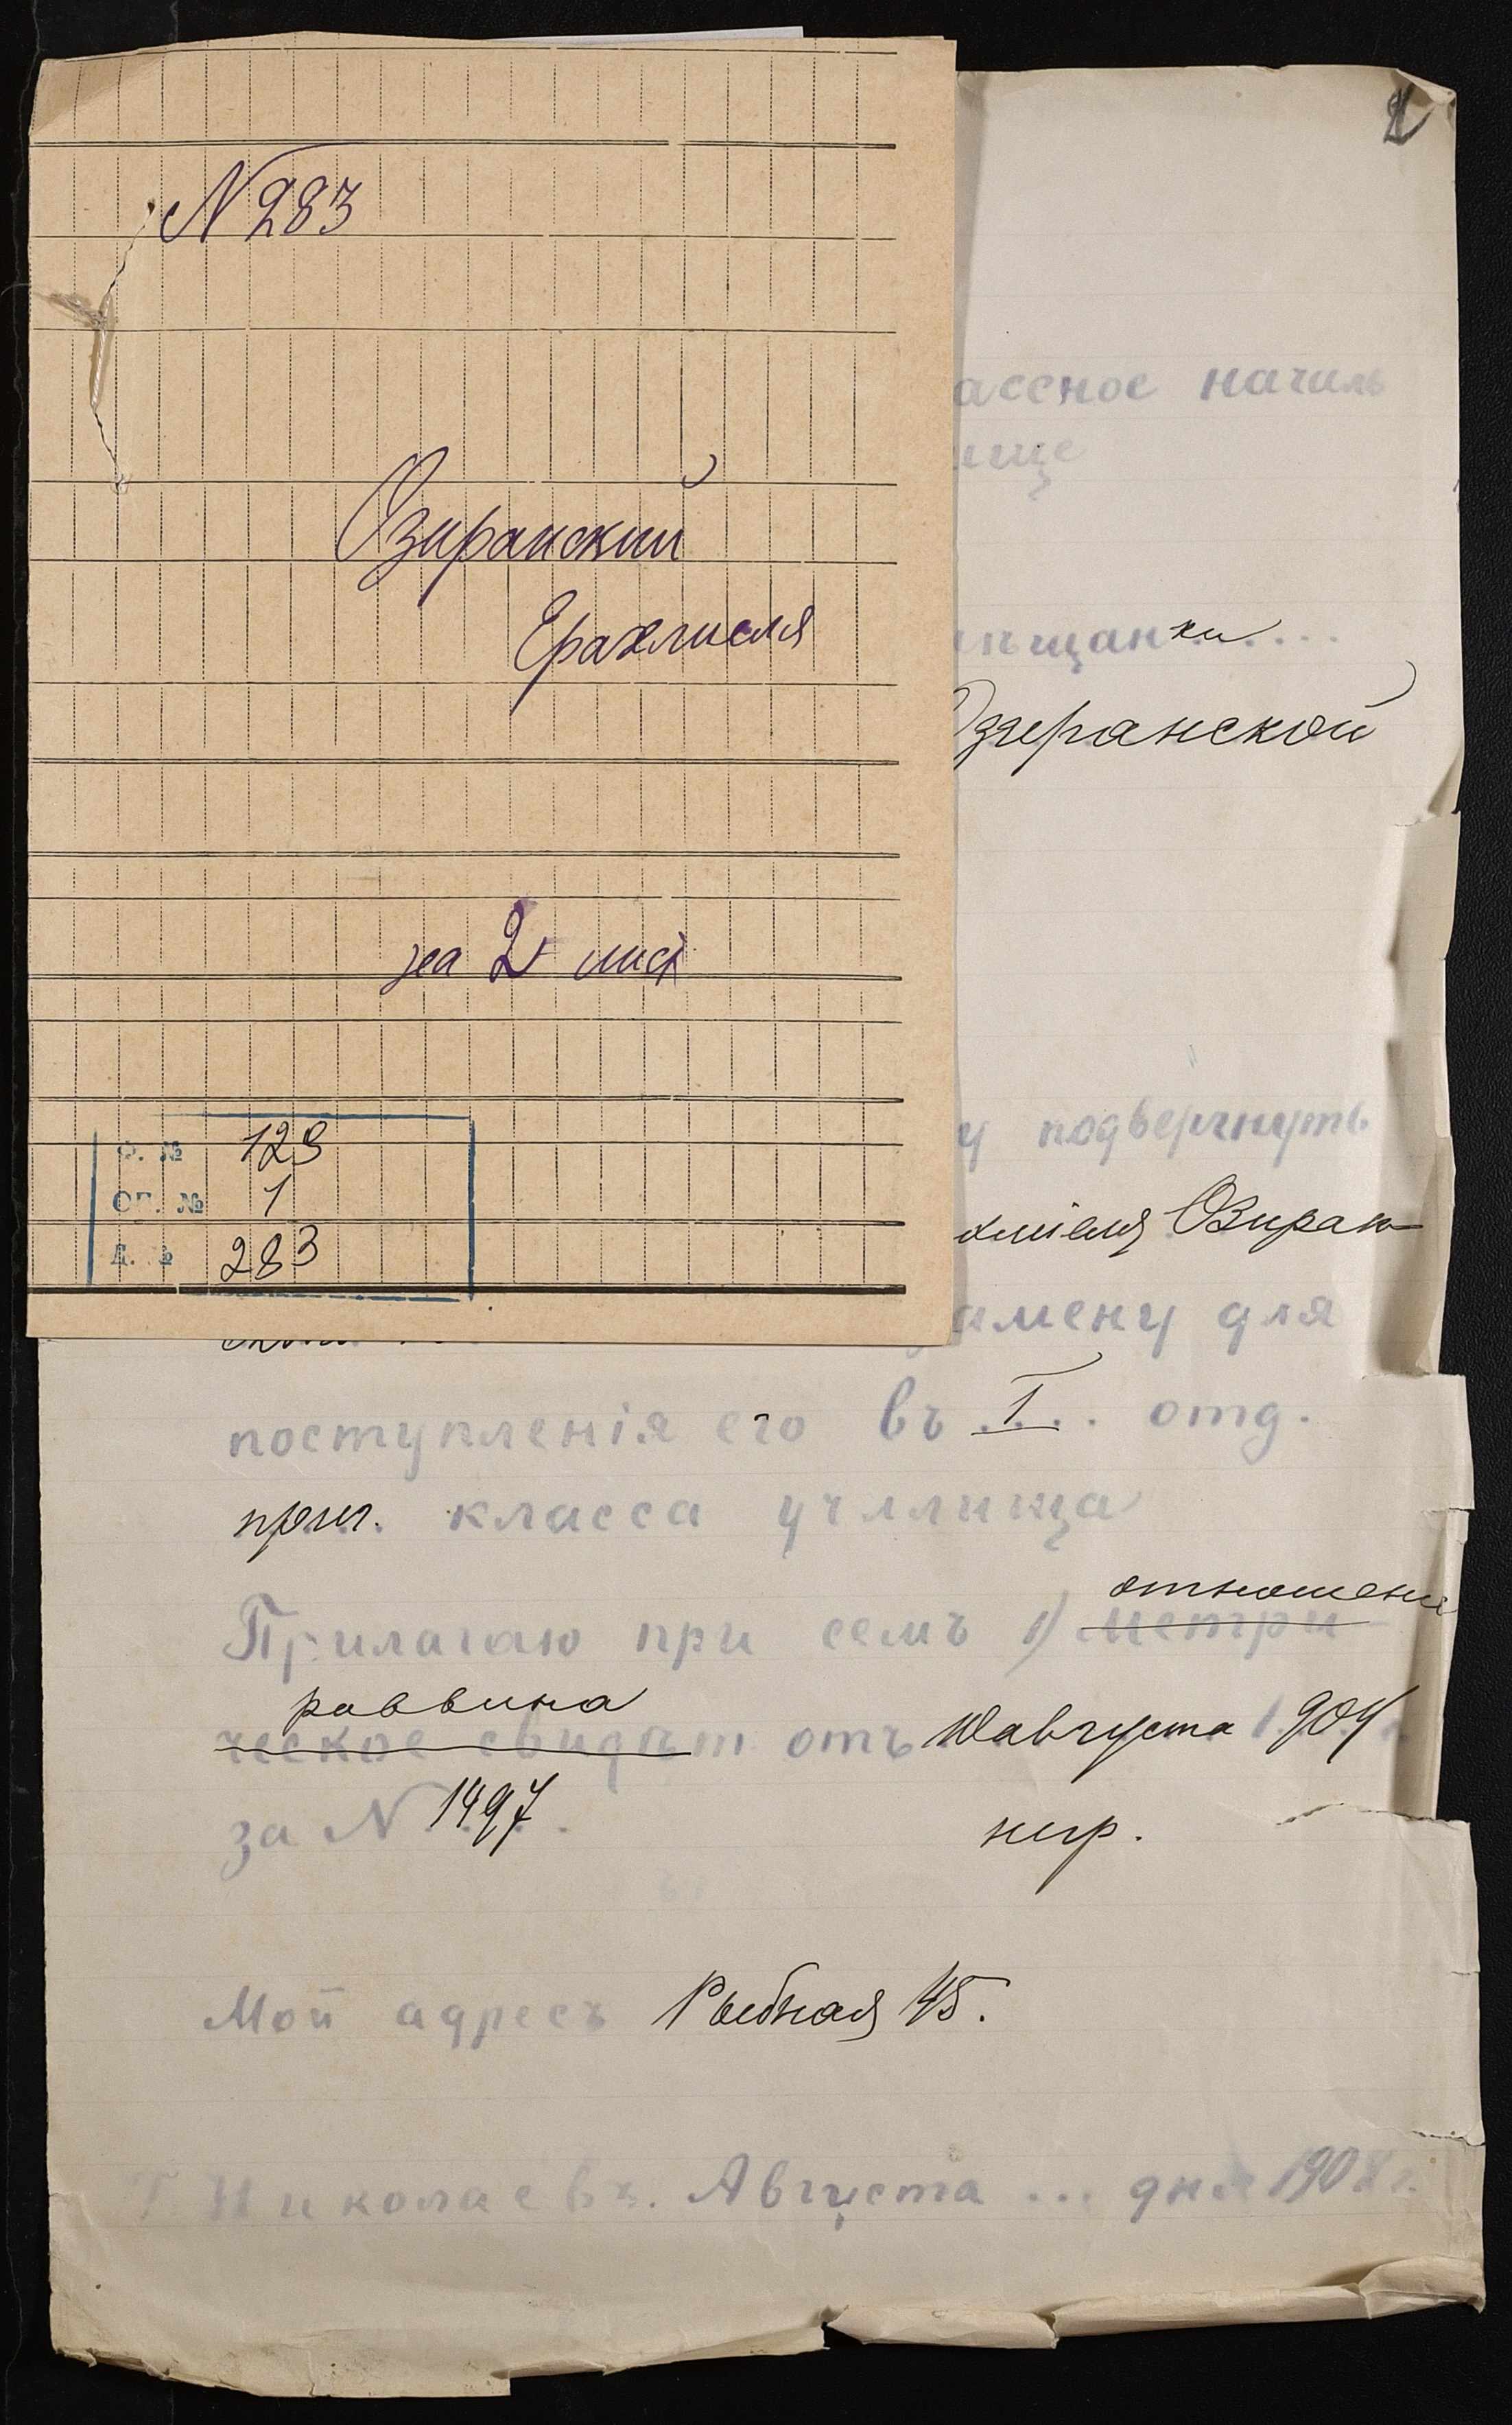 N 283
Озиранский
Ерахмиеля
на 2 лист
Ф. № 129
ОП. № 1
Д. № 283
ассное началь
ище
ѣщанки...
Озиранской
у подвергнуть
хміеля Озиран
амену для
поступленія его въ I... отд.
приг. класса училища
отношение
Прилагаю при семъ 1) метри
раввина
ческое свидѣт отъ 10 августа 1904
за N 1497.
нир.
Мой адресъ Рыбная 45.
Г Николаевъ. Августа ... дня 1904 г.